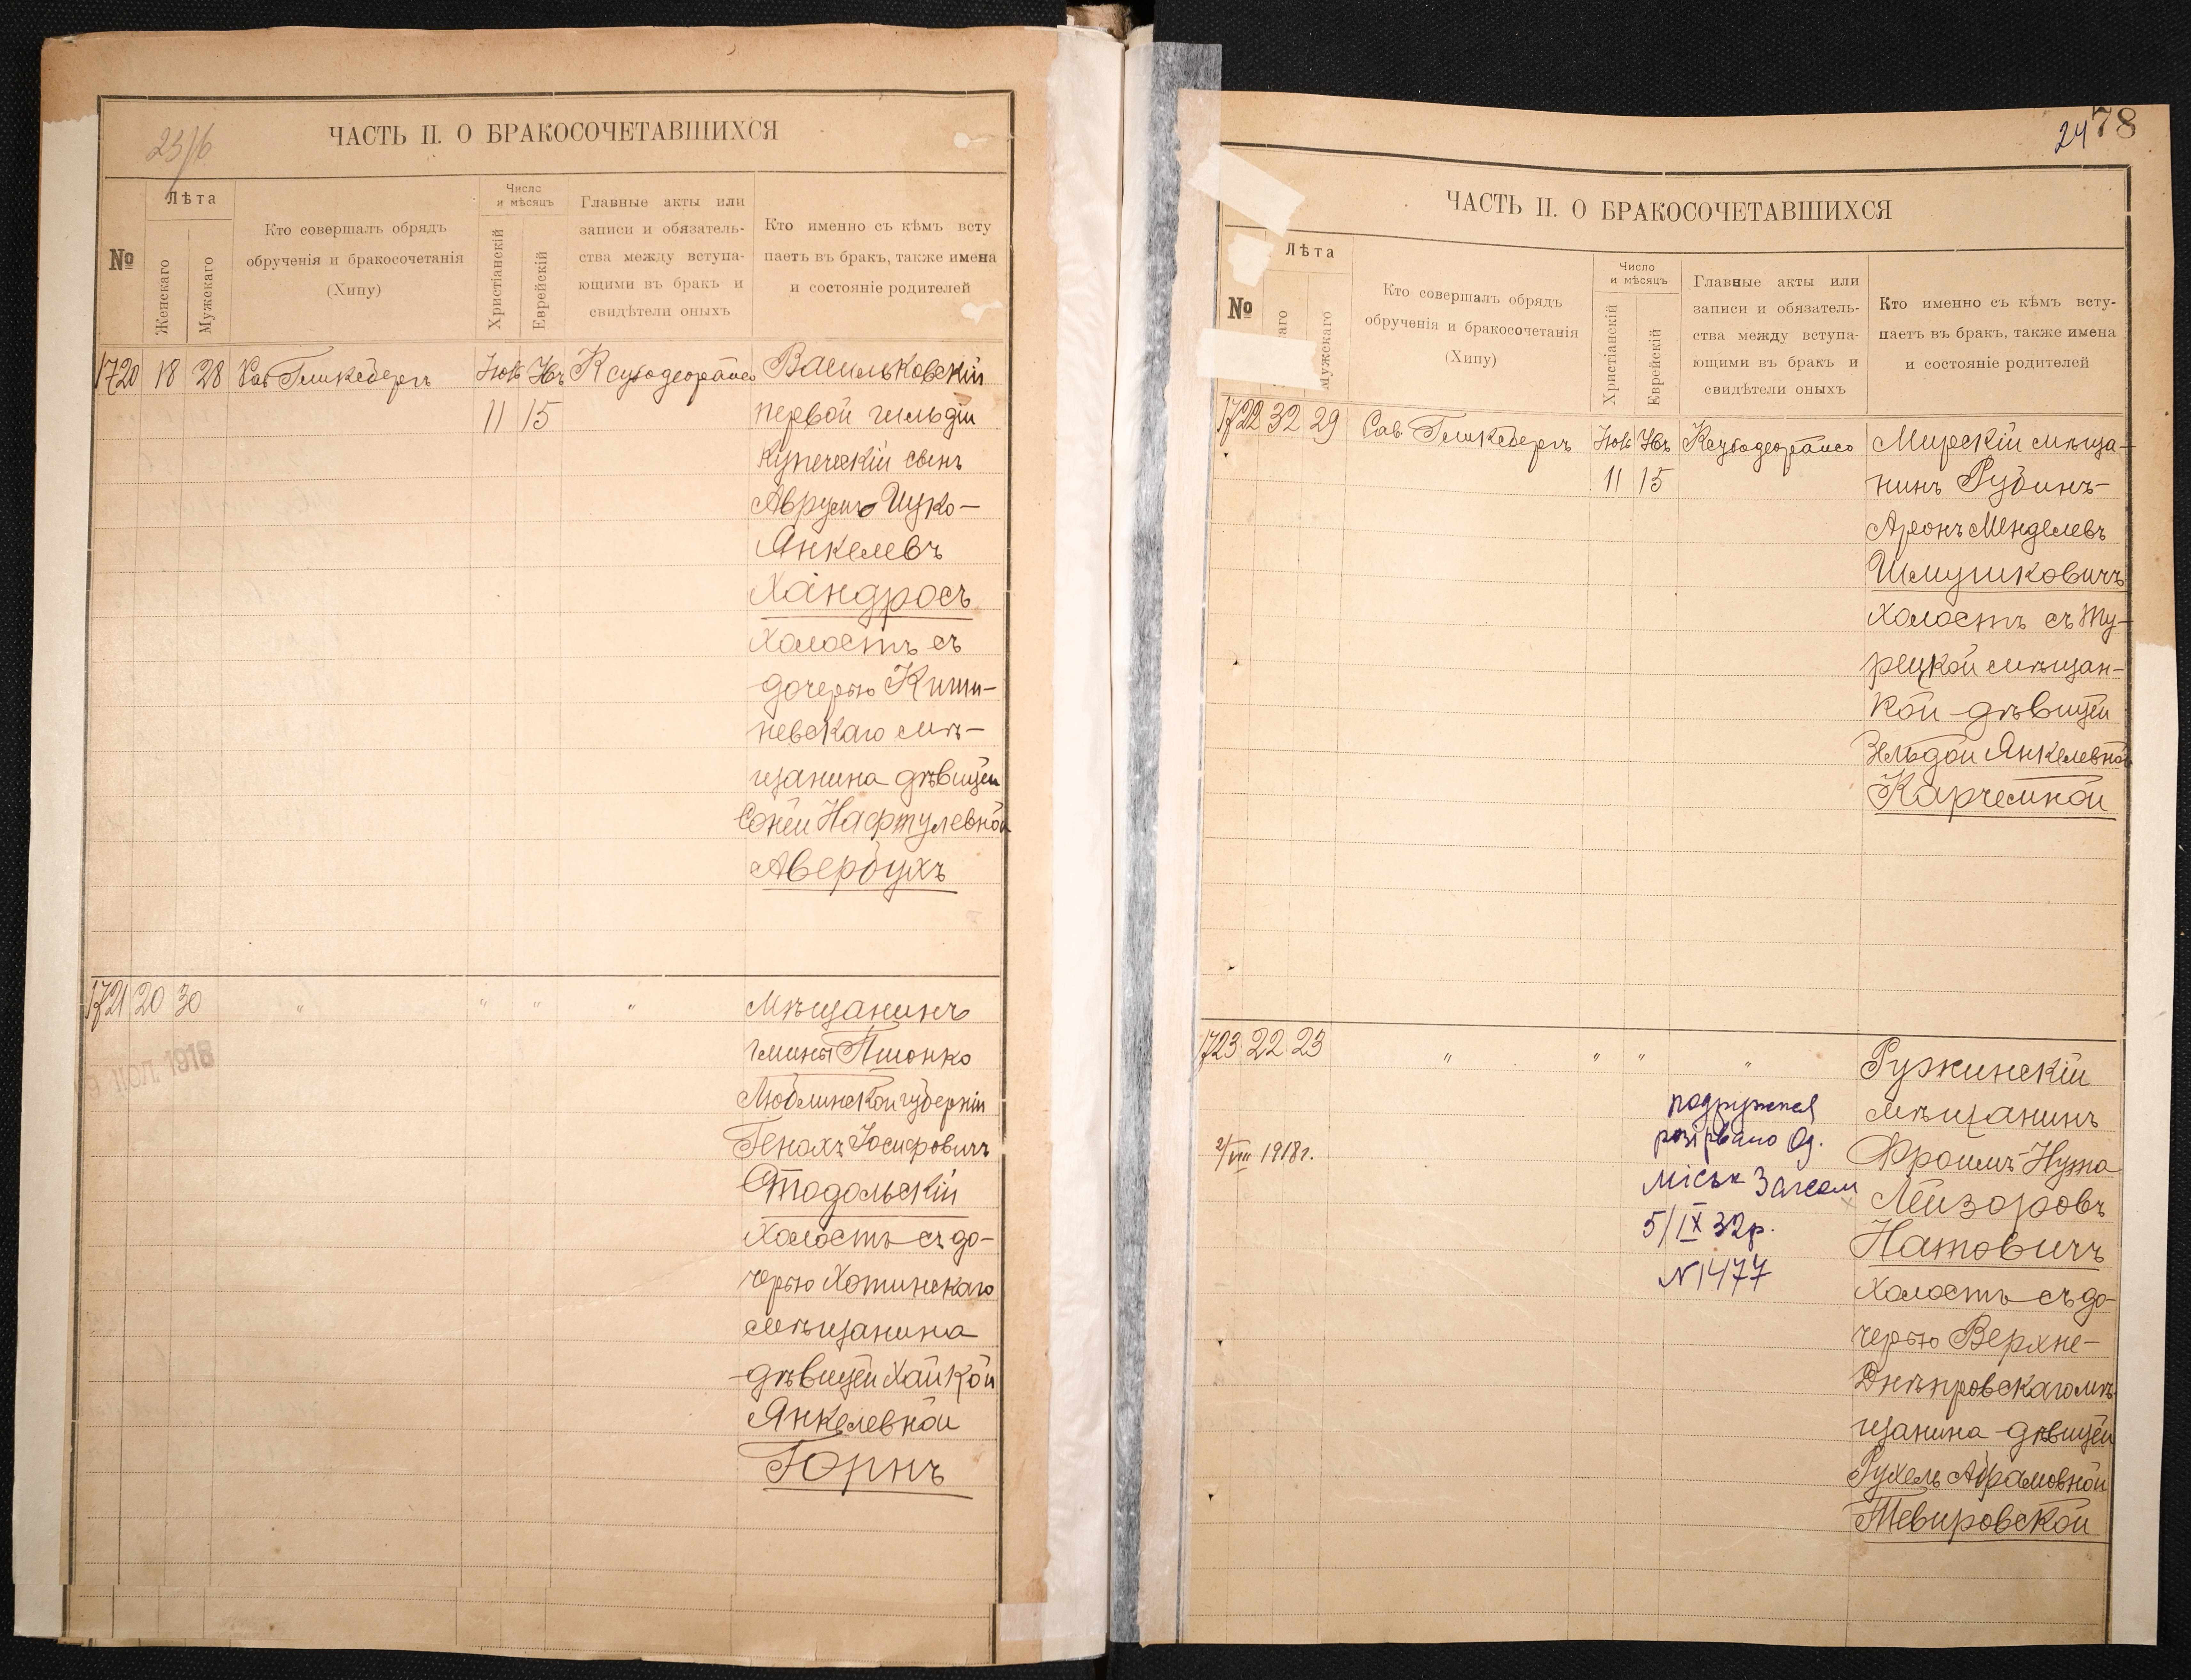 23/6
ЧАСТЬ II. О БРАКОСОЧЕТАВШИХСЯ
№
Лѣта
Женскаго
Мужскаго
Кто совершалъ обрядъ
обрученія и бракосочетанія
(Хипу)
Число
и мѣсяцъ
Христіанскій
Еврейскій
Главные акты или
записи и обязатель-
ства между вступа-
ющими въ бракъ и
свидѣтели оныхъ
Кто именно съ кѣмъ всту
паетъ въ бракъ, также имена
и состояніе родителей
1720 18 28 Гликсбергъ
11 15
Васильковскій
первой гильдіи
купеческій сынъ
Аврумъ Ицко-
Янкелевъ
Хандросъ
холостъ съ
дочерью Киши-
невскаго мѣ-
щанина дѣвицей
Соней Нафтулевной
Авербухъ
1721 20 30 " " " "
Мѣщанинъ
гмины Пионко
Люблинской губерніи
Генахъ Іосифовичъ
Стодольскій
холостъ съ до-
черью Хотинскаго
мѣщанина
дѣвицей Хайкой
Янкелевной
Горнъ
1918
24 78
ЧАСТЬ II. О БРАКОСОЧЕТАВШИХСЯ
№
Лѣта
Мужскаго
Кто совершалъ обрядъ
обрученія и бракосочетанія
(Хипу)
Число
и мѣсяцъ
Христіанскій
Еврейскій
Главные акты или
записи и обязатель-
ства между вступа-
ющими въ бракъ и
свидѣтели оныхъ
Кто именно съ кѣмъ всту-
паетъ въ бракъ, также имена
и состояніе родителей
1722 32 29 Гликсбергъ
11 15
Мирскій мѣща-
нинъ Рубинъ-
Аронъ Менделевъ
Шмушковичъ
холостъ съ Ту-
рецкой мѣщан-
кой дѣвицей
Зельдой Янкелевной
Карчемной
1723 22 23 " " " "
Ружинскій
мѣщанинъ
Фроимъ-Нута
Лейзоровъ
Натовичъ
холостъ съ до-
черью Верхне-
Днѣпровскаго мѣ-
щанина дѣвицей
Рухель Абрамовной
Тевировской
2/VIII 1918г.
розірвано Од.
міськ Загсом
5/IX 32р.
N1477